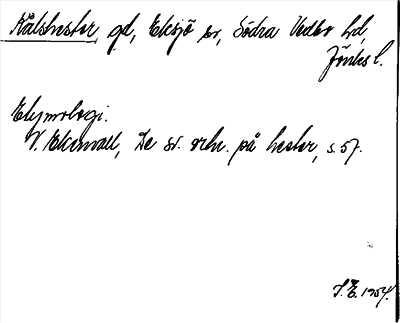 Kålshester gd, Eksjö sn, Södra Vedbo hd,
Jönk. l.
Etymologi.
V. Ekenvall, De sv. ortn. på hester, s. 57.
S.E. 1954.